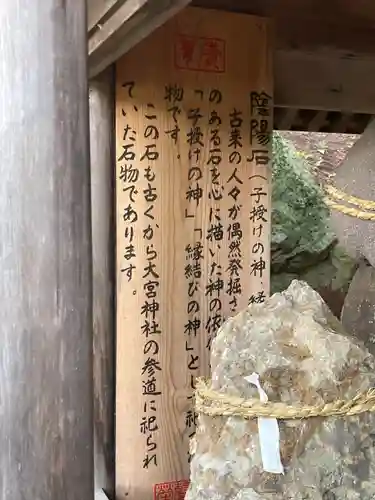 陰陽石(子授けの神・縁
古来の人々が偶然発掘さ
のある石を心に描いた神の依
「子授けの神」「縁結びの神」として
物です。
この石も古くから大宮神社の参道に祀られ
ていた石物であります。